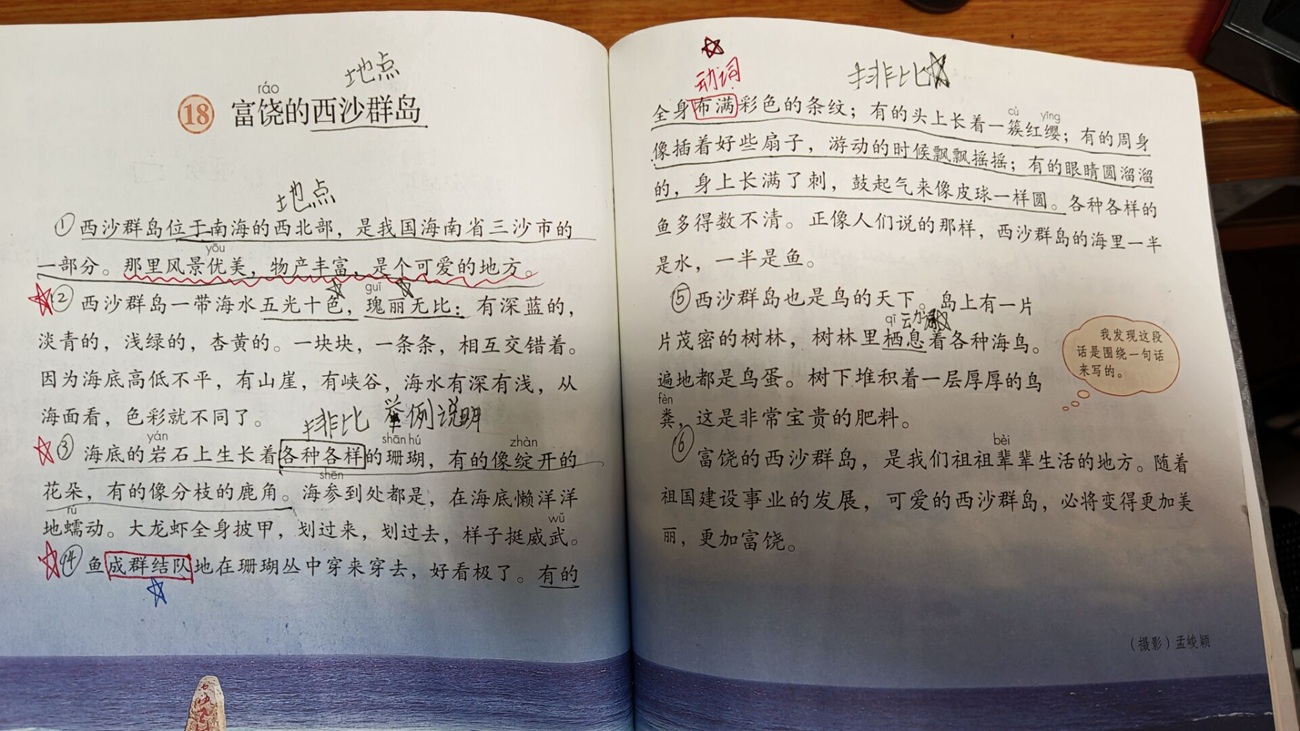 地点
ráo
18 富饶的西沙群岛
地点
①西沙群岛位于南海的西北部，是我国海南省三沙市的
yōu
一部分。那里风景优美，物产丰富，是个可爱的地方。
guī
②西沙群岛一带海水五光十色，瑰丽无比：有深蓝的，
淡青的，浅绿的，杏黄的。一块块，一条条，相互交错着。
因为海底高低不平，有山崖，有峡谷，海水有深有浅，从
海面看，色彩就不同了。
排比 举例说明
yán shān hú zhàn
③海底的岩石上生长着各种各样的珊瑚，有的像绽开的
shēn
花朵，有的像分枝的鹿角。海参到处都是，在海底懒洋洋
rú wǔ
地蠕动。大龙虾全身披甲，划过来，划过去，样子挺威武。
④鱼成群结队地在珊瑚丛中穿来穿去，好看极了。有的
动词
排比
全身布满彩色的条纹；有的头上长着一簇红缨；有的周身
cù yīng
像插着好些扇子，游动的时候飘飘摇摇；有的眼睛圆溜溜
的，身上长满了刺，鼓起气来像皮球一样圆。各种各样的
鱼多得数不清。正像人们说的那样，西沙群岛的海里一半
是水，一半是鱼。
⑤西沙群岛也是鸟的天下。岛上有一片
qī
片茂密的树林，树林里栖息着各种海鸟。
遍地都是鸟蛋。树下堆积着一层厚厚的鸟
fèn
粪，这是非常宝贵的肥料。
我发现这段
话是围绕一句话
来写的。
bèi
⑥富饶的西沙群岛，是我们祖祖辈辈生活的地方。随着
祖国建设事业的发展，可爱的西沙群岛，必将变得更加美
丽，更加富饶。
（摄影）孟峻颖